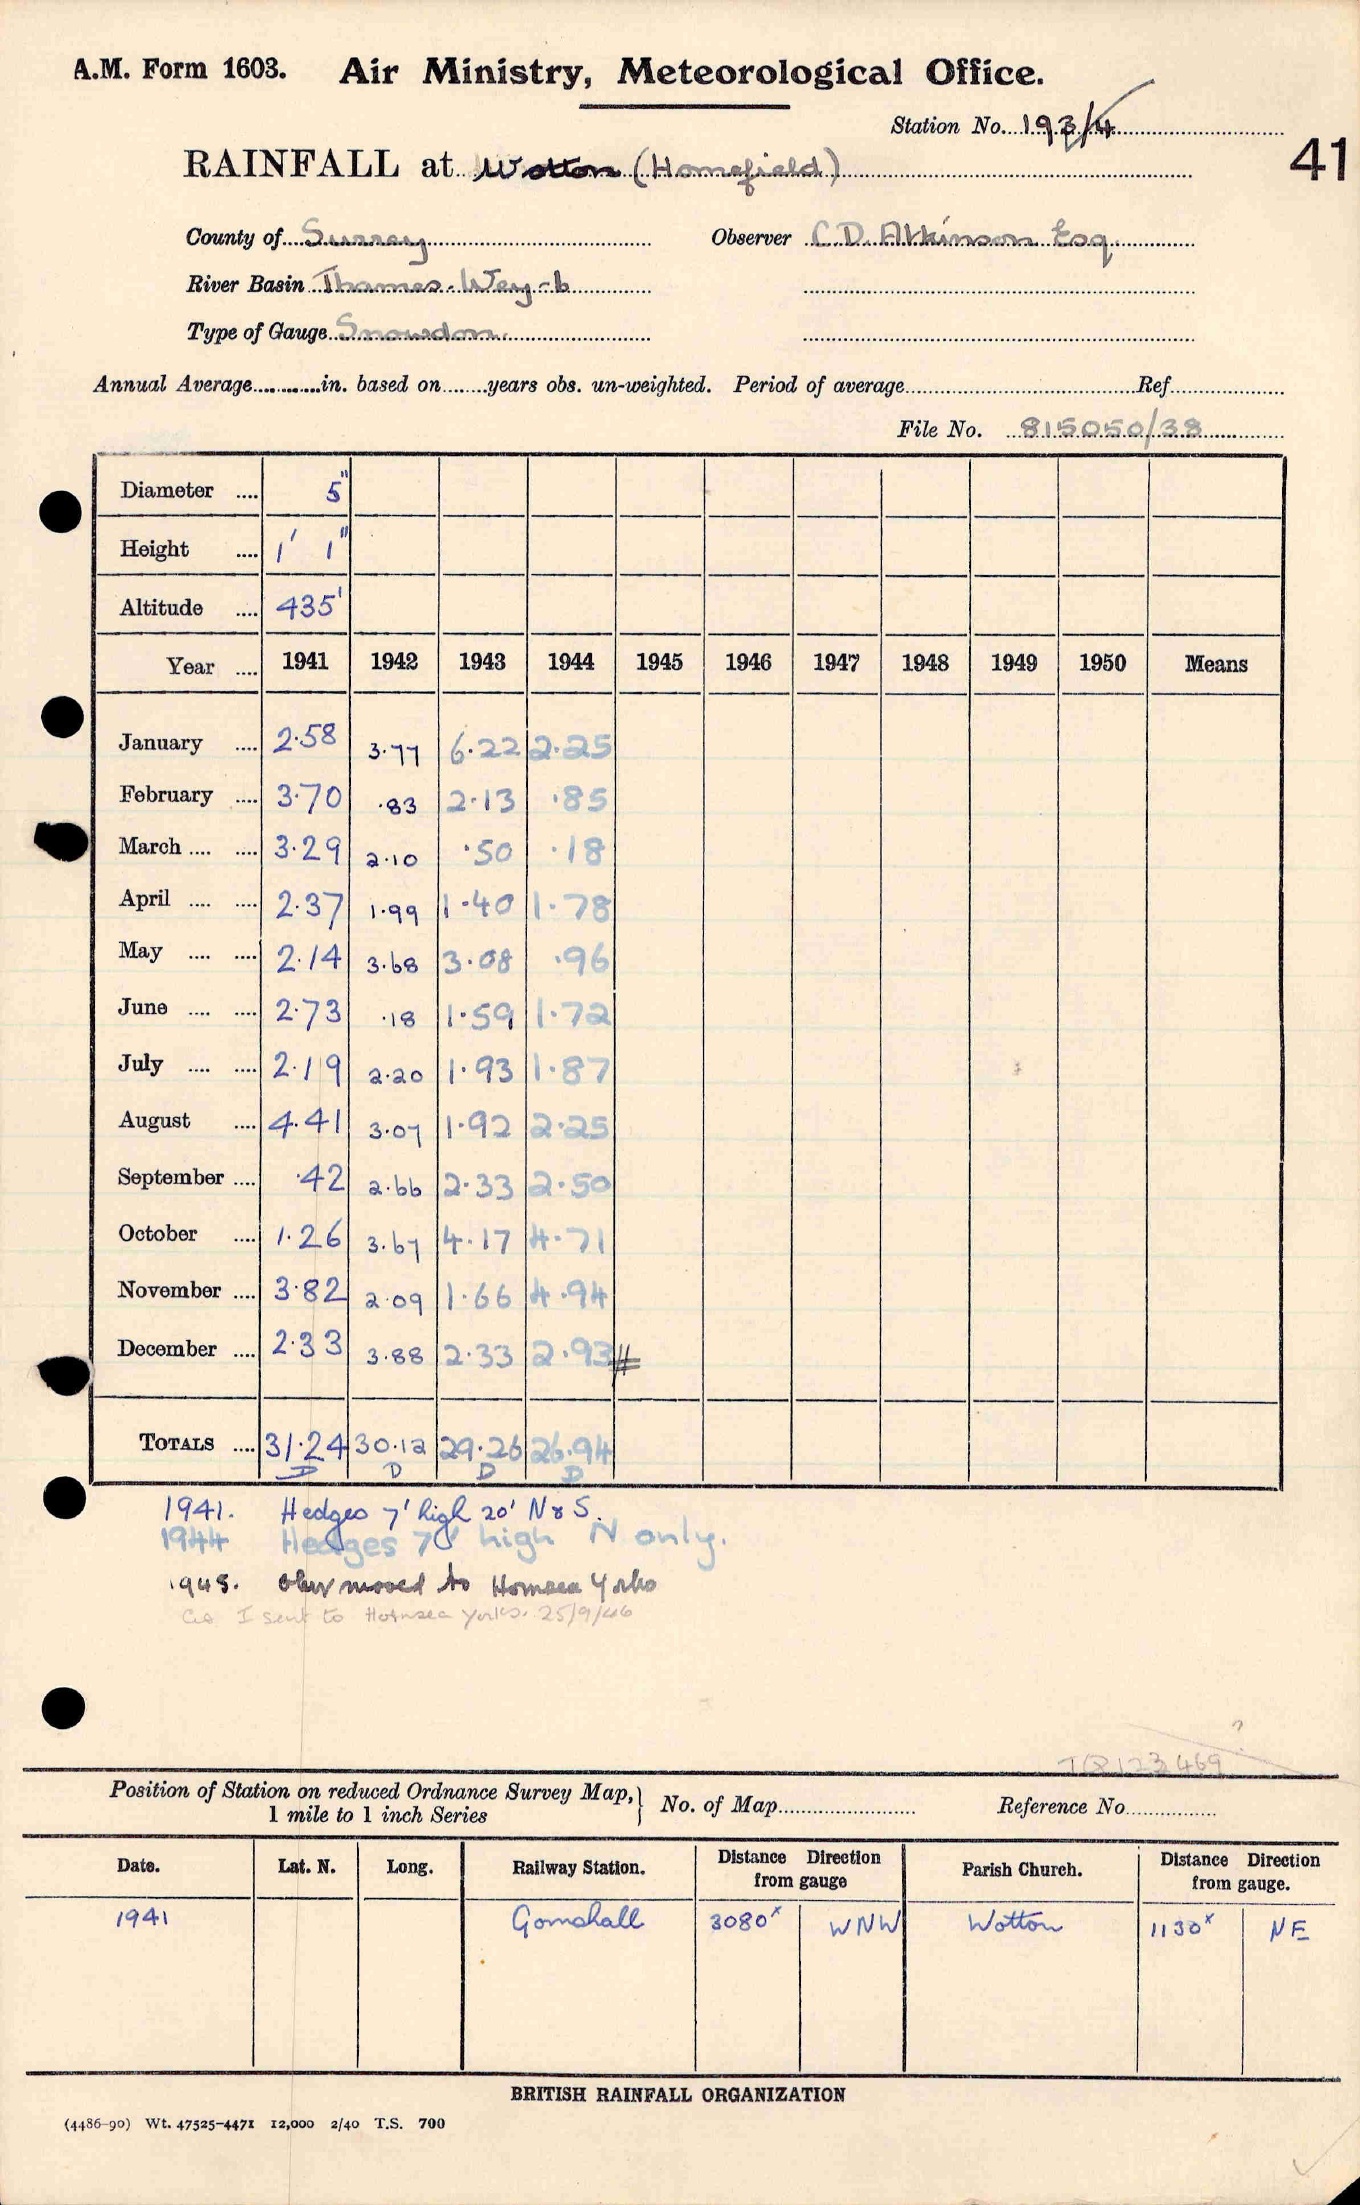 A.M. Form 1603. Air Ministry, Meteorological Office.
Station No. 193/4
41
RAINFALL at Wotton (Homefield)
County of Surrey Observer C.D. Atkinson Esq.
River Basin Thames-Wey-b
Type of Gauge Snowdon.
Annual Average in. based on years obs. un-weighted. Period of average Ref
File No. 815050/38
Diameter .... 5"
Height .... 1' 1"
Altitude .... 435'
Year .... 1941 1942 1943 1944 1945 1946 1947 1948 1949 1950 Means
January .... 2.58 3.77 6.22 2.25
February .... 3.70 .83 2.13 .85
March .... .... 3.29 2.10 .50 .18
April .... .... 2.37 1.99 1.40 1.78
May .... .... 2.14 3.68 3.08 .96
June .... .... 2.73 .18 1.59 1.72
July .... .... 2.19 2.20 1.93 1.87
August .... 4.41 3.07 1.92 2.25
September .... .42 2.66 2.33 2.50
October .... 1.26 3.67 4.17 4.71
November .... 3.82 2.09 1.66 4.94
December .... 2.33 3.88 2.33 2.93
TOTALS .... 31.24 30.12 29.26 26.94
D D D D
1941. Hedges 7' high 20' N & S.
1944 Hedges 7' high N only.
1945. Obsr moved to Hornsea Yorks
I sent to Hornsea Yorks. 25/9/46
?
TQ 123 469
Position of Station on reduced Ordnance Survey Map, 1 mile to 1 inch Series } No. of Map Reference No.
Date. Lat. N. Long. Railway Station. Distance Direction from gauge Parish Church. Distance Direction from gauge.
1941 Gomshall 3080x WNW Wotton 1130x NE
BRITISH RAINFALL ORGANIZATION
(4486-90) Wt. 47525-4471 12,000 2/40 T.S. 700